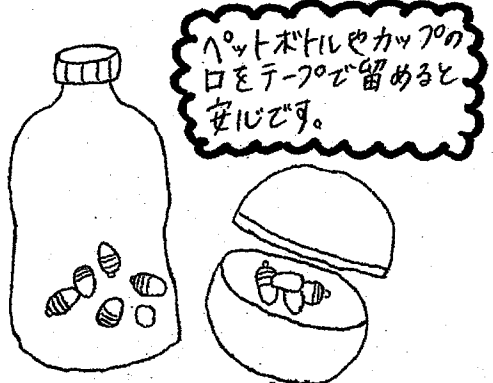 ペットボトルやカップの
口をテープで留めると
安心です。